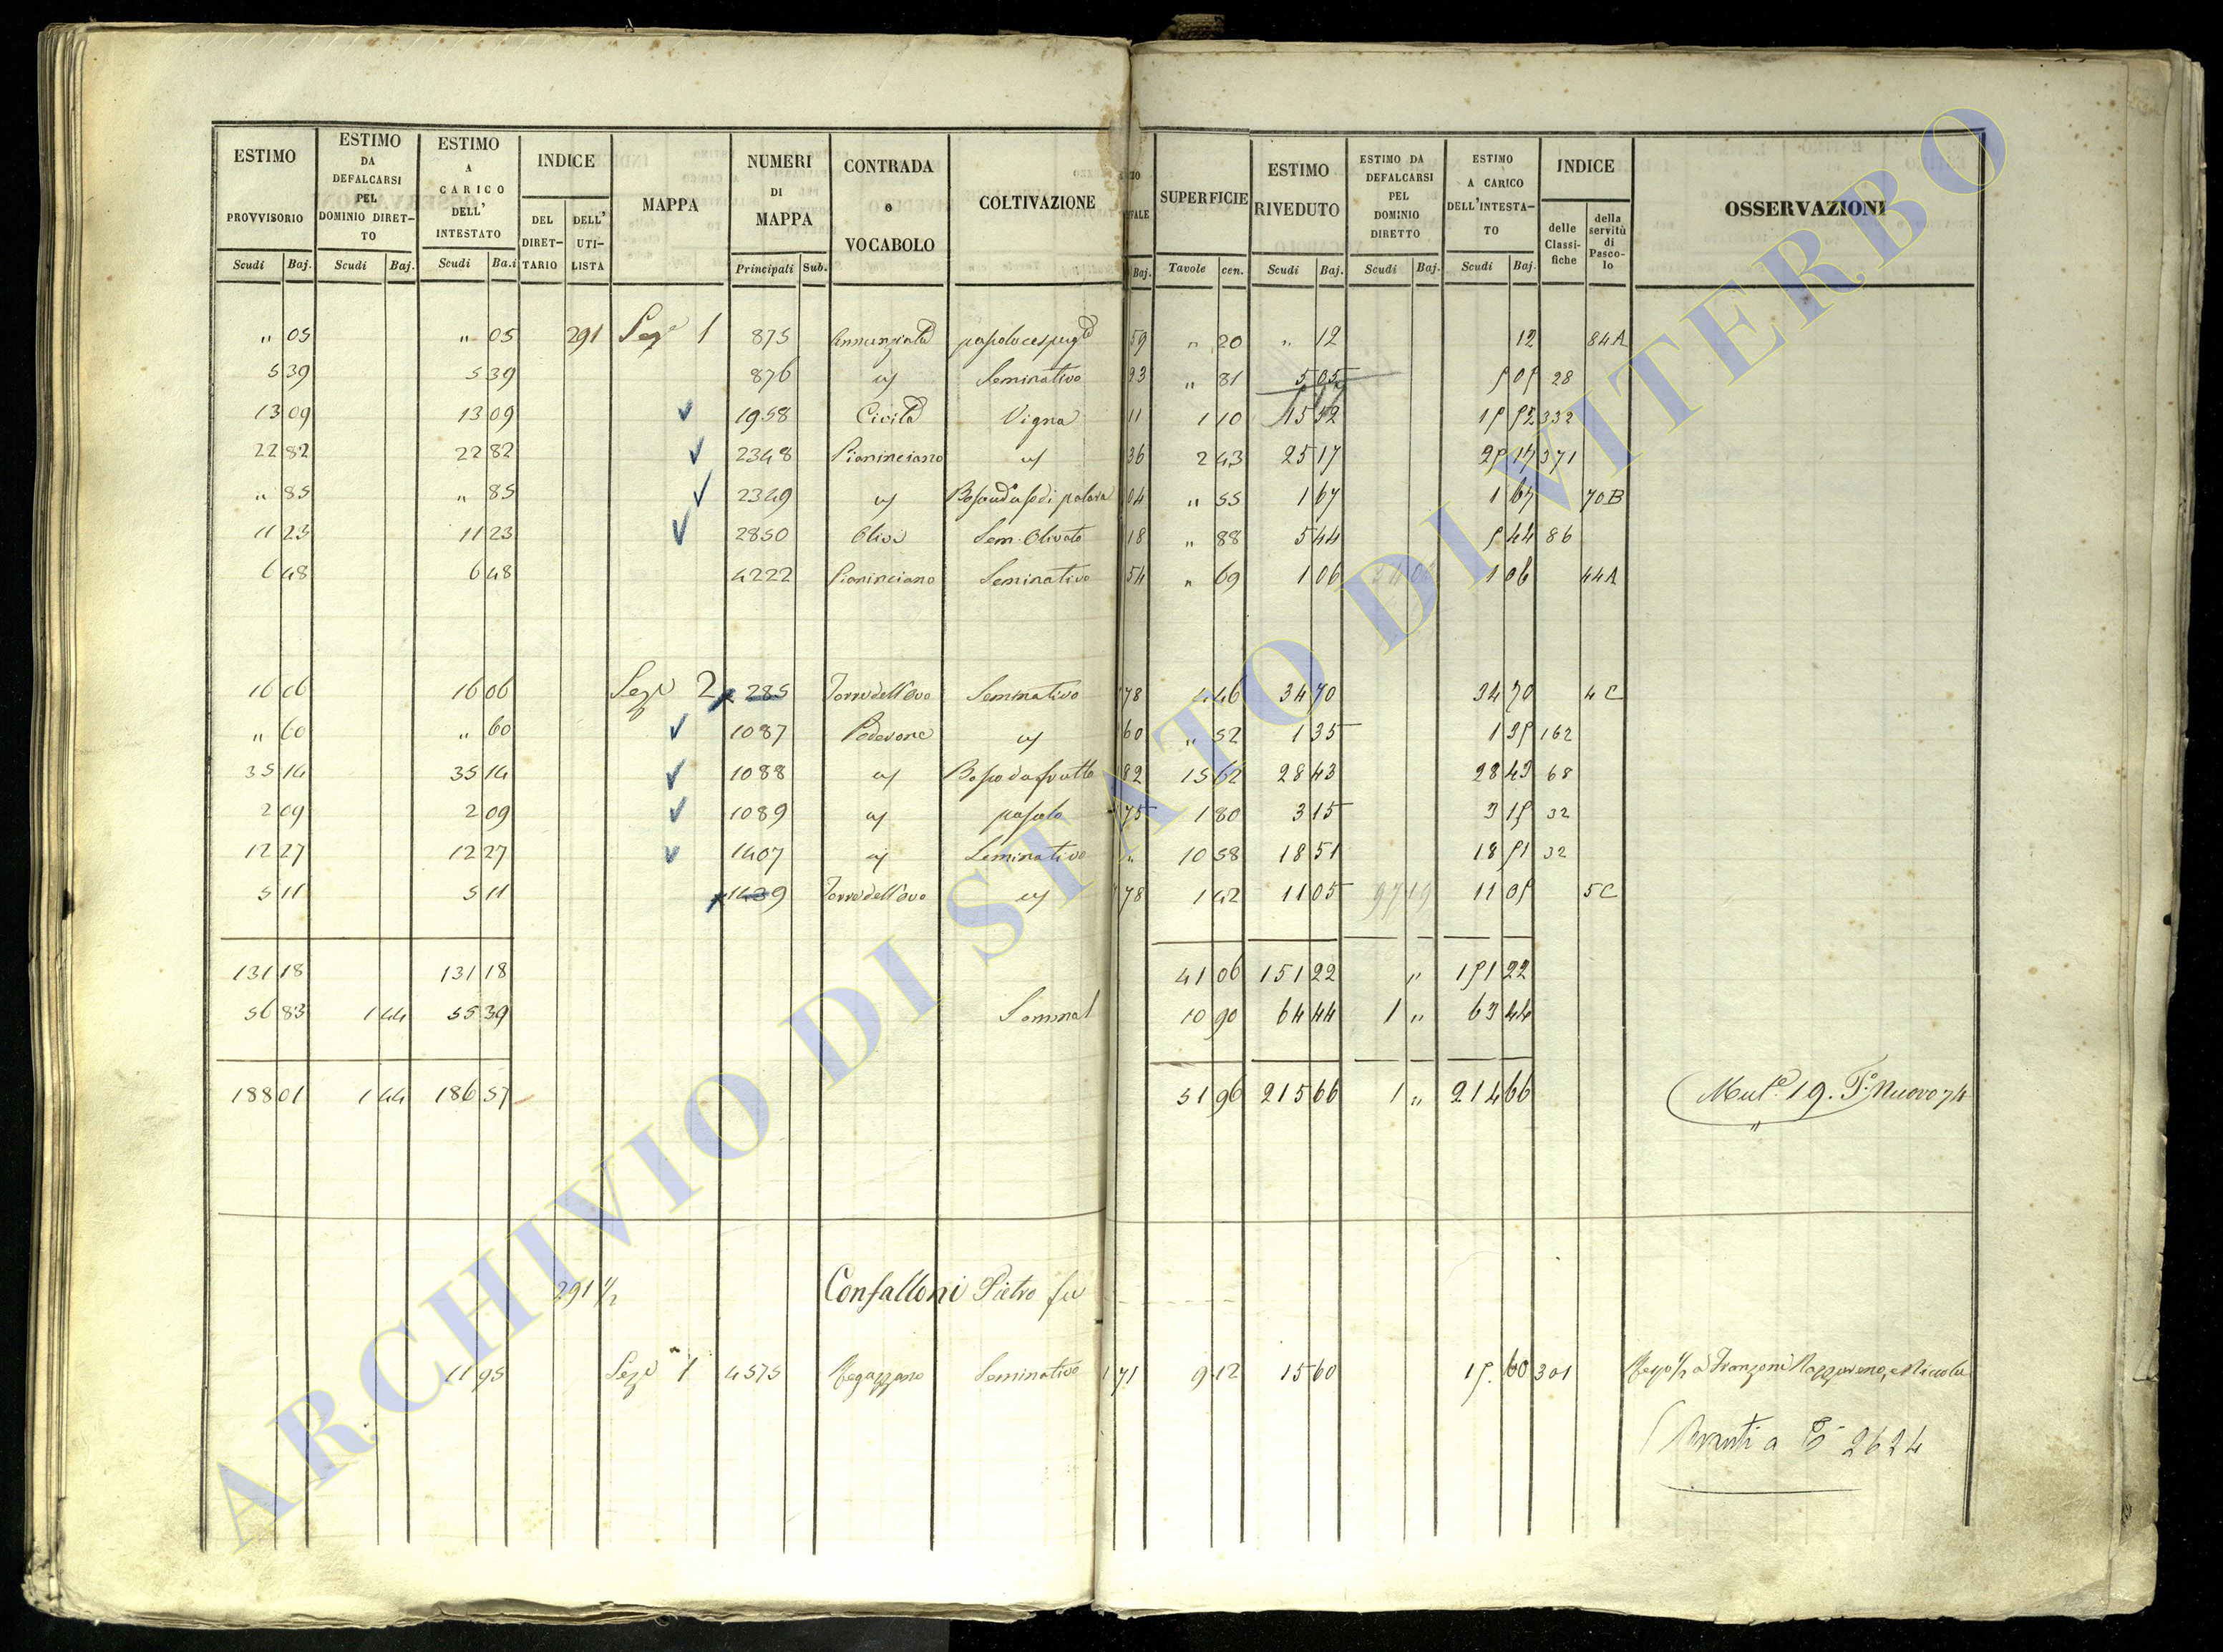 ESTIMO PROVVISORIO Scudi Baj.
ESTIMO DA DEFALCARSI PEL DOMINIO DIRETTO Scudi Baj.
ESTIMO A CARICO DELL' INTESTATO Scudi Ba.i
INDICE DEL DIRETTARIO DELL' UTILISTA
MAPPA
NUMERI DI MAPPA Principali Sub.
CONTRADA o VOCABOLO
COLTIVAZIONE
Baj.
SUPERFICIE Tavole cen.
ESTIMO RIVEDUTO Scudi Baj.
ESTIMO DA DEFALCARSI PEL DOMINIO DIRETTO Scudi Baj.
ESTIMO A CARICO DELL'INTESTATO Scudi Baj.
INDICE delle Classifiche della servitù di Pascolo
OSSERVAZIONI
" 05 " 05 291 Seze 1 875 Annunziata 59 " 20 " 12 12 84A
5 39 5 39 876 Seminativo 23 " 81 5 05 5 05 28
13 09 13 09 1958 Civita Vigna 11 1 10 15 52 15 52 332
22 82 22 82 2348 Pianinciano 36 2 43 25 17 25 17 371
" 85 " 85 2349 04 " 55 1 67 1 67 70B
11 23 11 23 2850 Sem. Olivato 18 " 88 5 44 5 44 86
6 48 6 48 4222 Pianinciano Seminativo 54 " 69 1 06 1 06 44A
16 06 16 06 Seze 2 285 Torre dell'Ovo Seminativo 78 4 46 34 70 34 70 4C
" 60 " 60 1087 Poderone 60 " 52 1 35 1 35 162
35 14 35 14 1088 82 15 62 28 43 28 43 68
2 09 2 09 1089 pascolo 75 1 80 3 15 3 15 32
12 27 12 27 1407 Seminativo " 10 58 18 51 18 51 32
5 11 5 11 1439 Torre dell'Ovo 78 1 42 11 05 97 19 11 05 5C
131 18 131 18 41 06 151 22 " 151 22
56 83 1 44 55 39 10 90 64 44 1 " 63 44
188 01 1 44 186 57 51 96 215 66 1 " 214 66 Mut.e 19. P.o Nuovo 74
291 1/2 Confalloni Pietro fu
11 95 Seze 1 4575 Regazzano Seminativo 1 71 9 12 15 60 15. 60 301 a Franzoni Nazzareno, e Niccola
Avanti a 2624
ARCHIVIO DI STATO DI VITERBO